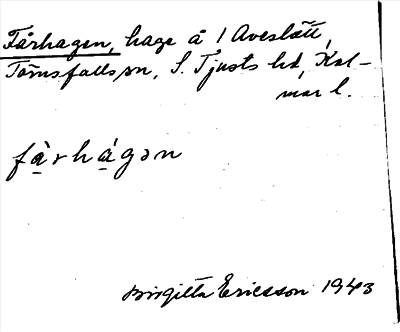 Fårhagen, hage å 1 Aveslätt,
Törnsfalls sn, S. Tjusts hd, Kal-
mar l.
fà̱rhá̱gən
Birgitta Ericsson 1943